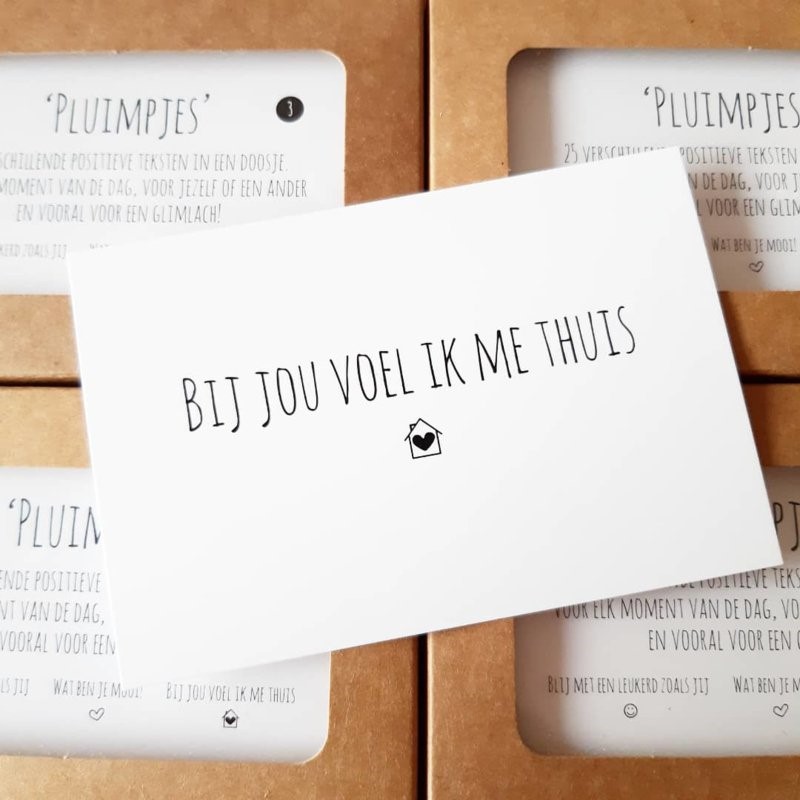 'PLUIMPJES'
3
SCHILLENDE POSITIEVE TEKSTEN IN EEN DOOSJE.
MOMENT VAN DE DAG, VOOR JEZELF OF EEN ANDER
EN VOORAL VOOR EEN GLIMLACH!
LEUKERD ZOALS JIJ
'PLUIMPJES
25 VERSCHILLENDE POSITIEVE TEKSTEN
N DE DAG, VOOR
VOOR EEN
WAT BEN JE MOOI!
BIJ JOU VOEL IK ME THUIS
POSITIEVE
VAN DE DAG,
VOORAL VOOR EEN
ALS JIJ WAT BEN JE MOOI! BIJ JOU VOEL IK ME THUIS
POSITIEVE
VOOR ELK MOMENT VAN DE DAG,
EN VOORAL VOOR EEN
BLIJ MET EEN LEUKERD ZOALS JIJ WAT BEN JE